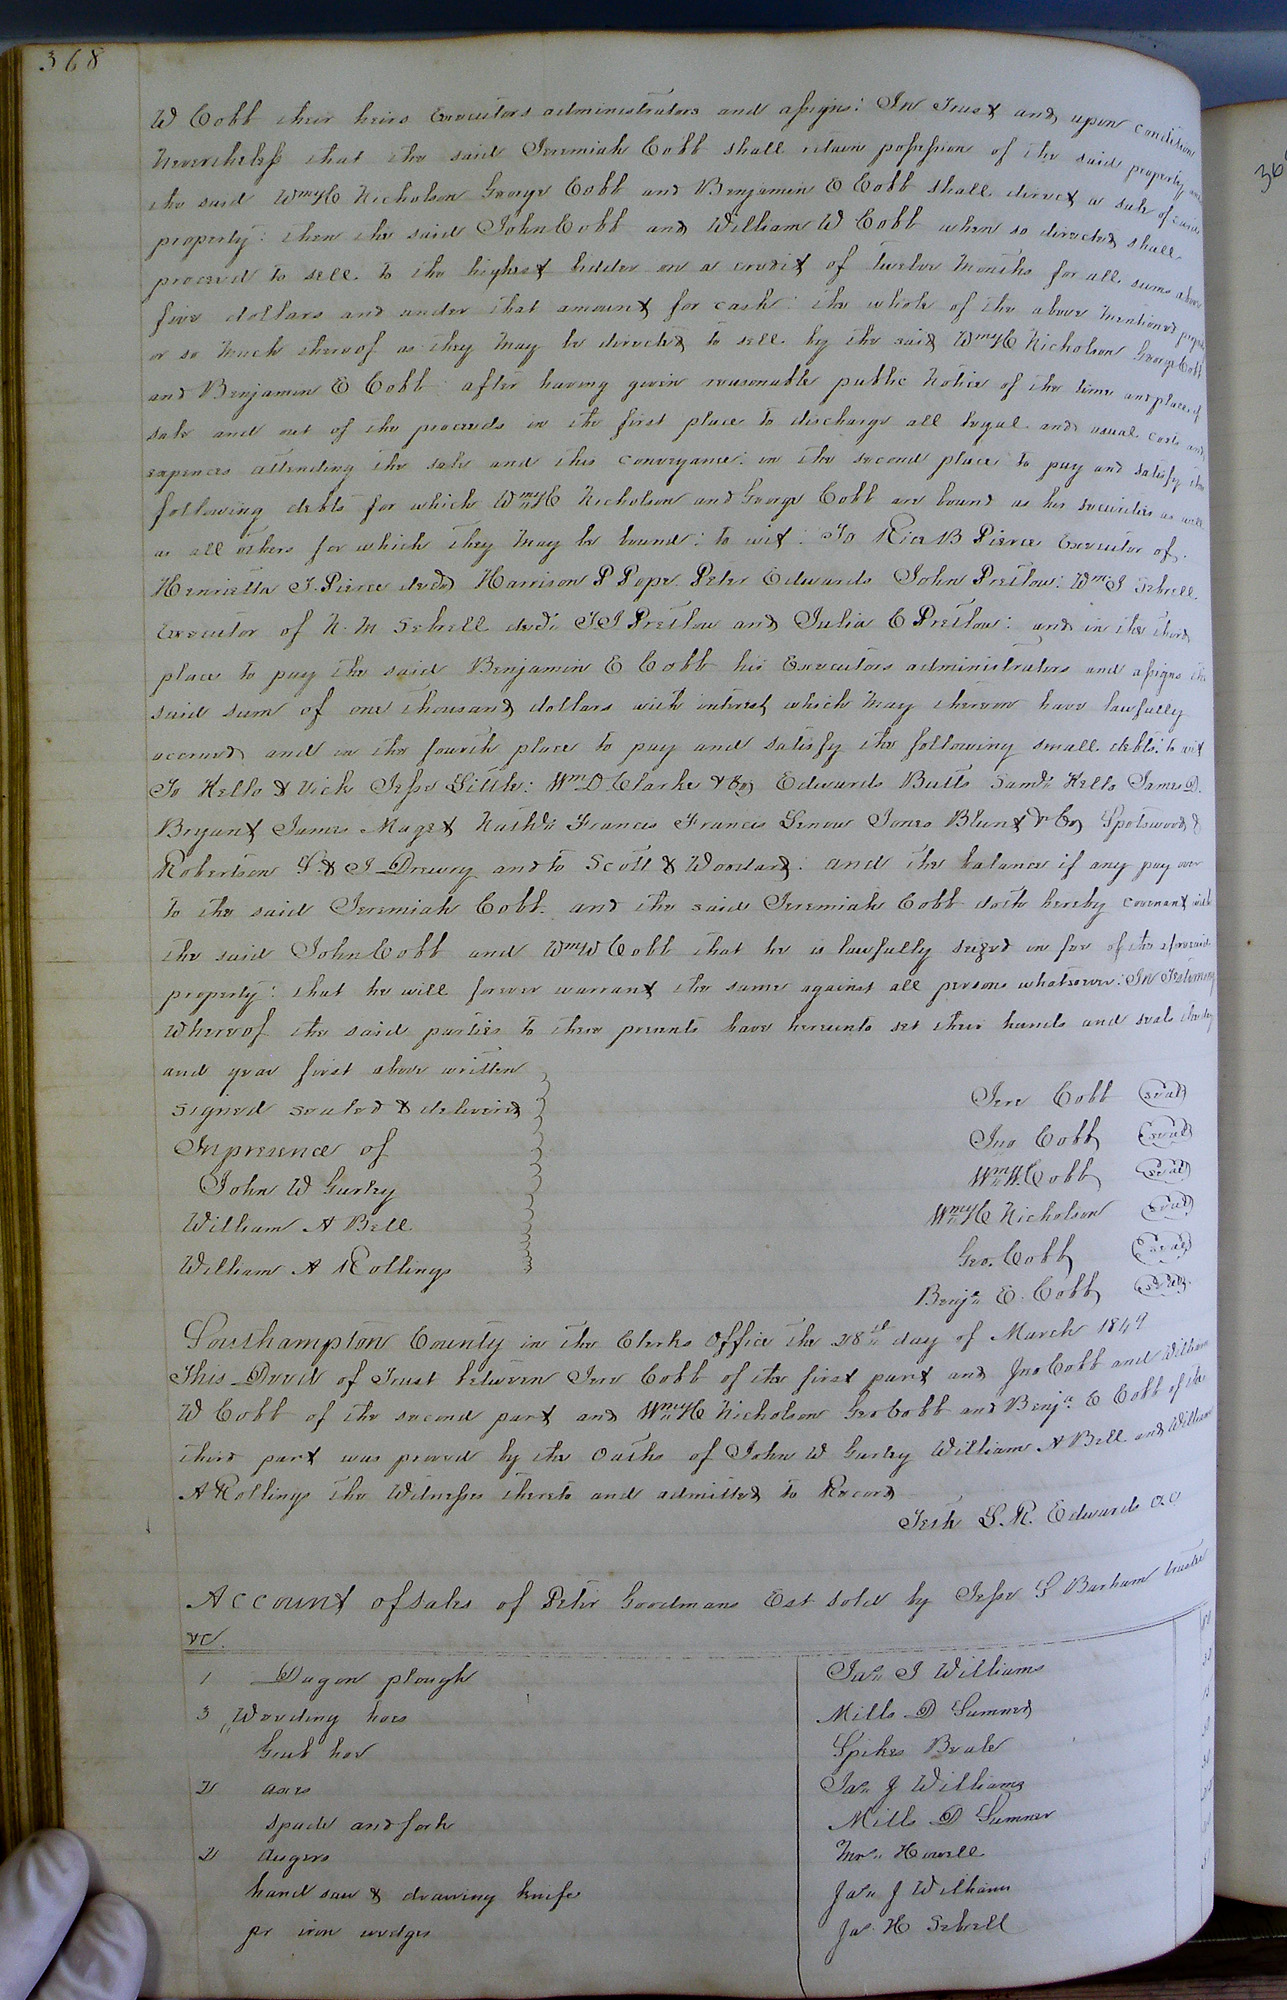 368
W Cobb their heirs Executors administrators and assigns: In Trust and upon condition
Nevertheless that the said Jeremiah Cobb shall retain possession of the said property until
the said Wm H Nicholson George Cobb and Benjamin E Cobb shall direct a sale of said
property: then the said John Cobb and William W Cobb when so directed shall
proceed to sell to the highest bidder on a credit of twelve Months for all sums above
five dollars and under that amount for cash: the whole of the above Mentioned property
or so Much thereof as they May be directed to sell by the said Wm H Nicholson George Cobb
and Benjamin E Cobb after having given reasonable public Notice of the time and place of
sale and out of the proceeds in the first place to discharge all legal and usual costs and
expences attending the sale and this conveyance: in the second place to pay and satisfy the
following debts for which Wm H Nicholson and George Cobb are bound as his securities as well
as all others for which they May be bound: to wit: To Rice B Pierce Executor of
Henrietta T. Pierce decd Harrison P Pope Peter Edwards John Pretlow: Wm J Sebrell
Executor of N. M Sebrell decd. T J Pretlow and Julia C Pretlow: and in the third
place to pay the said Benjamin E Cobb his Executors administrators and assigns the
said sum of one thousand dollars with interest which May thereon have lawfully
accrued, and in the fourth place to pay and satisfy the following small debts: to wit
To Kello & Vick Jesse Little: Wm D. Clarke & Co, Edwards Butts Saml. Kello James D.
Bryant James Maget Nathl. Francis Francis Lenow Jones Blunt & Co, Spotswood &
Robertson S. & J Drewry and to Scott & Woodard: and the balance if any pay over
to the said Jeremiah Cobb. and the said Jeremiah Cobb doth hereby covenant with
the said John Cobb and Wm W Cobb that he is lawfully seized in fee of the aforesaid
property: that he will forever warrant the same against all persons whatsoever: In Testimony
whereof the said parties to these presents have hereunto set their hands and seals the day
and year first above written
Signed sealed & delivered
In presence of
John W Gurley
William A Bell
William A Rollings
Jere Cobb (seal)
Jno Cobb (seal)
Wm W. Cobb (seal)
Wm H Nicholson (seal)
Geo. Cobb (seal)
Benja. E. Cobb (seal)
Southampton County in the Clerks Office the 28th day of March 1849
This Deed of Trust between Jere Cobb of the first part and Jno Cobb and William
W Cobb of the second part and Wm H Nicholson Geo Cobb and Benja. E Cobb of the
third part was proved by the Oaths of John W Gurley William A Bell and William
A Rollings the Witnesses thereto and admitted to Record
Teste L. R. Edwards C.C
Account of sales of Peter Goodmans Est sold by Jesse S Barham trustee
&C.
1 Dagon plough Jas. J Williams
3 Weeding hoes Mills D Sumner
Grub hoe Spikes Beale
2 axes Jas. J Williams
spade and fork Mills D Sumner
2 augers Howell
hand saw & drawing knife Jas. J Williams
pr iron wedges Jas. H Sebrell